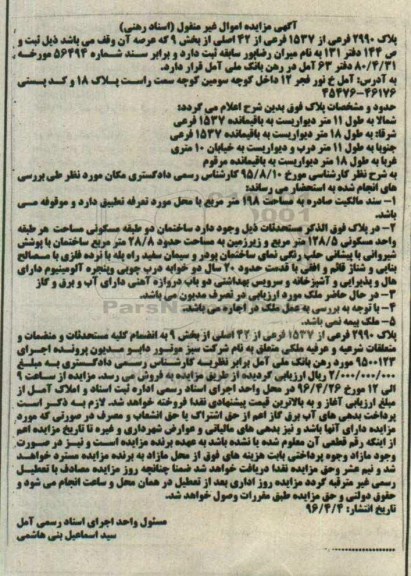 آگهی مزایده اموال غیر منقول (اسناد رهنی)
پلاک ۲۹۹۰ فرعی از ۱۵۳۷ فرعی از ۴۲ اصلی از بخش ۹ که عرصه آن وقف می باشد ذیل ثبت و
ص ۱۴۴ دفتر ۱۳۱ به نام میران رضاپور سابقه ثبت دارد و برابر سند شماره ۵۶۴۹۴ مورخه
۸۰/۴/۳۱ دفتر ۶۳ آمل در رهن بانک ملی آمل قرار دارد.
به آدرس: آمل خ نور فجر ۱۲ داخل کوچه سومین کوچه سمت راست پلاک ۱۸ و کد پستی
۴۶۱۷۶-۴۵۴۷۶
حدود و مشخصات پلاک فوق بدین شرح اعلام می گردد:
شمالا به طول ۱۱ متر دیواریست به باقیمانده ۱۵۳۷ فرعی
شرقا: به طول ۱۸ متر دیواریست به باقیمانده ۱۵۳۷ فرعی
جنوبا به طول ۱۱ متر درب و دیواریست به خیابان ۱۰ متری
غربا به طول ۱۸ متر دیواریست به باقیمانده مرقوم
به شرح نظر کارشناسی مورخ ۹۵/۸/۱۰ کارشناس رسمی دادگستری مکان مورد نظر طی بررسی
های انجام شده به استحضار می رساند:
۱- سند مالکیت صادره به مساحت ۱۹۸ متر مربع با محل مورد تعرفه تطبیق دارد و موقوفه می
باشد.
۲- در پلاک فوق الذکر مستحدثات ذیل وجود دارد ساختمان دو طبقه مسکونی مساحت هر طبقه
واحد مسکونی ۱۲۸/۵ متر مربع و زیرزمین به مساحت حدود ۲۸/۸ متر مربع ساختمان با پوشش
شیروانی با پیشانی حلب رنگی نمای ساختمان پودر و سیمان سفید راه پله با نرده فلزی با مصالح
بنایی و شناژ قائم و افقی با قدمت حدود ۲۰ سال دو خوابه درب چوبی وپنجره آلومینیوم دارای
هال و پذیرایی و آشپزخانه و سرویس بهداشتی دو باب دروازه آهنی دارای آب و برق و گاز
۳- در حال حاضر ملک مورد ارزیابی در تصرف مدیون می باشد.
۴- با توجه به بررسی به عمل ملک در اجاره می باشد.
۵- ملک بیمه نمی باشد.
پلاک ۲۹۹۰ فرعی از ۱۵۳۷ فرعی از ۴۲ اصلی از بخش ۹ به انضمام کلیه مستحدثات و منضمات و
متعلقات شرعیه و عرفیه ملکی متعلق به نام شرکت سبز موتور دابو مدیون پرونده اجرای
۹۵۰۰۱۲۳ مورد رهن بانک ملی آمل برابر نظریه کارشناس رسمی دادگستری به مبلغ
۲/۰۰۰/۰۰۰/۰۰۰ ریال ارزیابی گردیده از طریق مزایده به فروش می رسد. مزایده از ساعت ۹
الی ۱۲ مورخ ۹۶/۴/۲۶ در محل واحد اجرای اسناد رسمی اداره ثبت اسناد و املاک آمل از
مبلغ ارزیابی آغاز و به بالاترین قیمت پیشنهادی نقدا فروخته خواهد شد. لازم به ذکر است
پرداخت بدهی های آب برق گاز اعم از حق اشتراک یا حق انشعاب و مصرف در صورتی که مورد
مزایده دارای آنها باشد و نیز بدهی های مالیاتی و عوارض شهرداری و غیره تا تاریخ مزایده اعم
از اینکه رقم قطعی آن معلوم شده یا نشده باشد به عهده برنده مزایده است و نیز در صورت
وجود مازاد وجوه پرداختی بابت هزینه های فوق از محل مازاد به برنده مزایده مسترد خواهد
شد و نیم عشر وحق مزایده نقدا دریافت خواهد شد ضمنا چنانچه روز مزایده مصادف با تعطیل
رسمی غیر مترقبه گردد مزایده روز اداری بعد از تعطیل در همان محل و ساعت انجام می شود و
حقوق دولتی و حق مزایده طبق مقررات وصول خواهد شد.
تاریخ انتشار: ۹۶/۴/۴
مسئول واحد اجرای اسناد رسمی آمل
سید اسماعیل بنی هاشمی